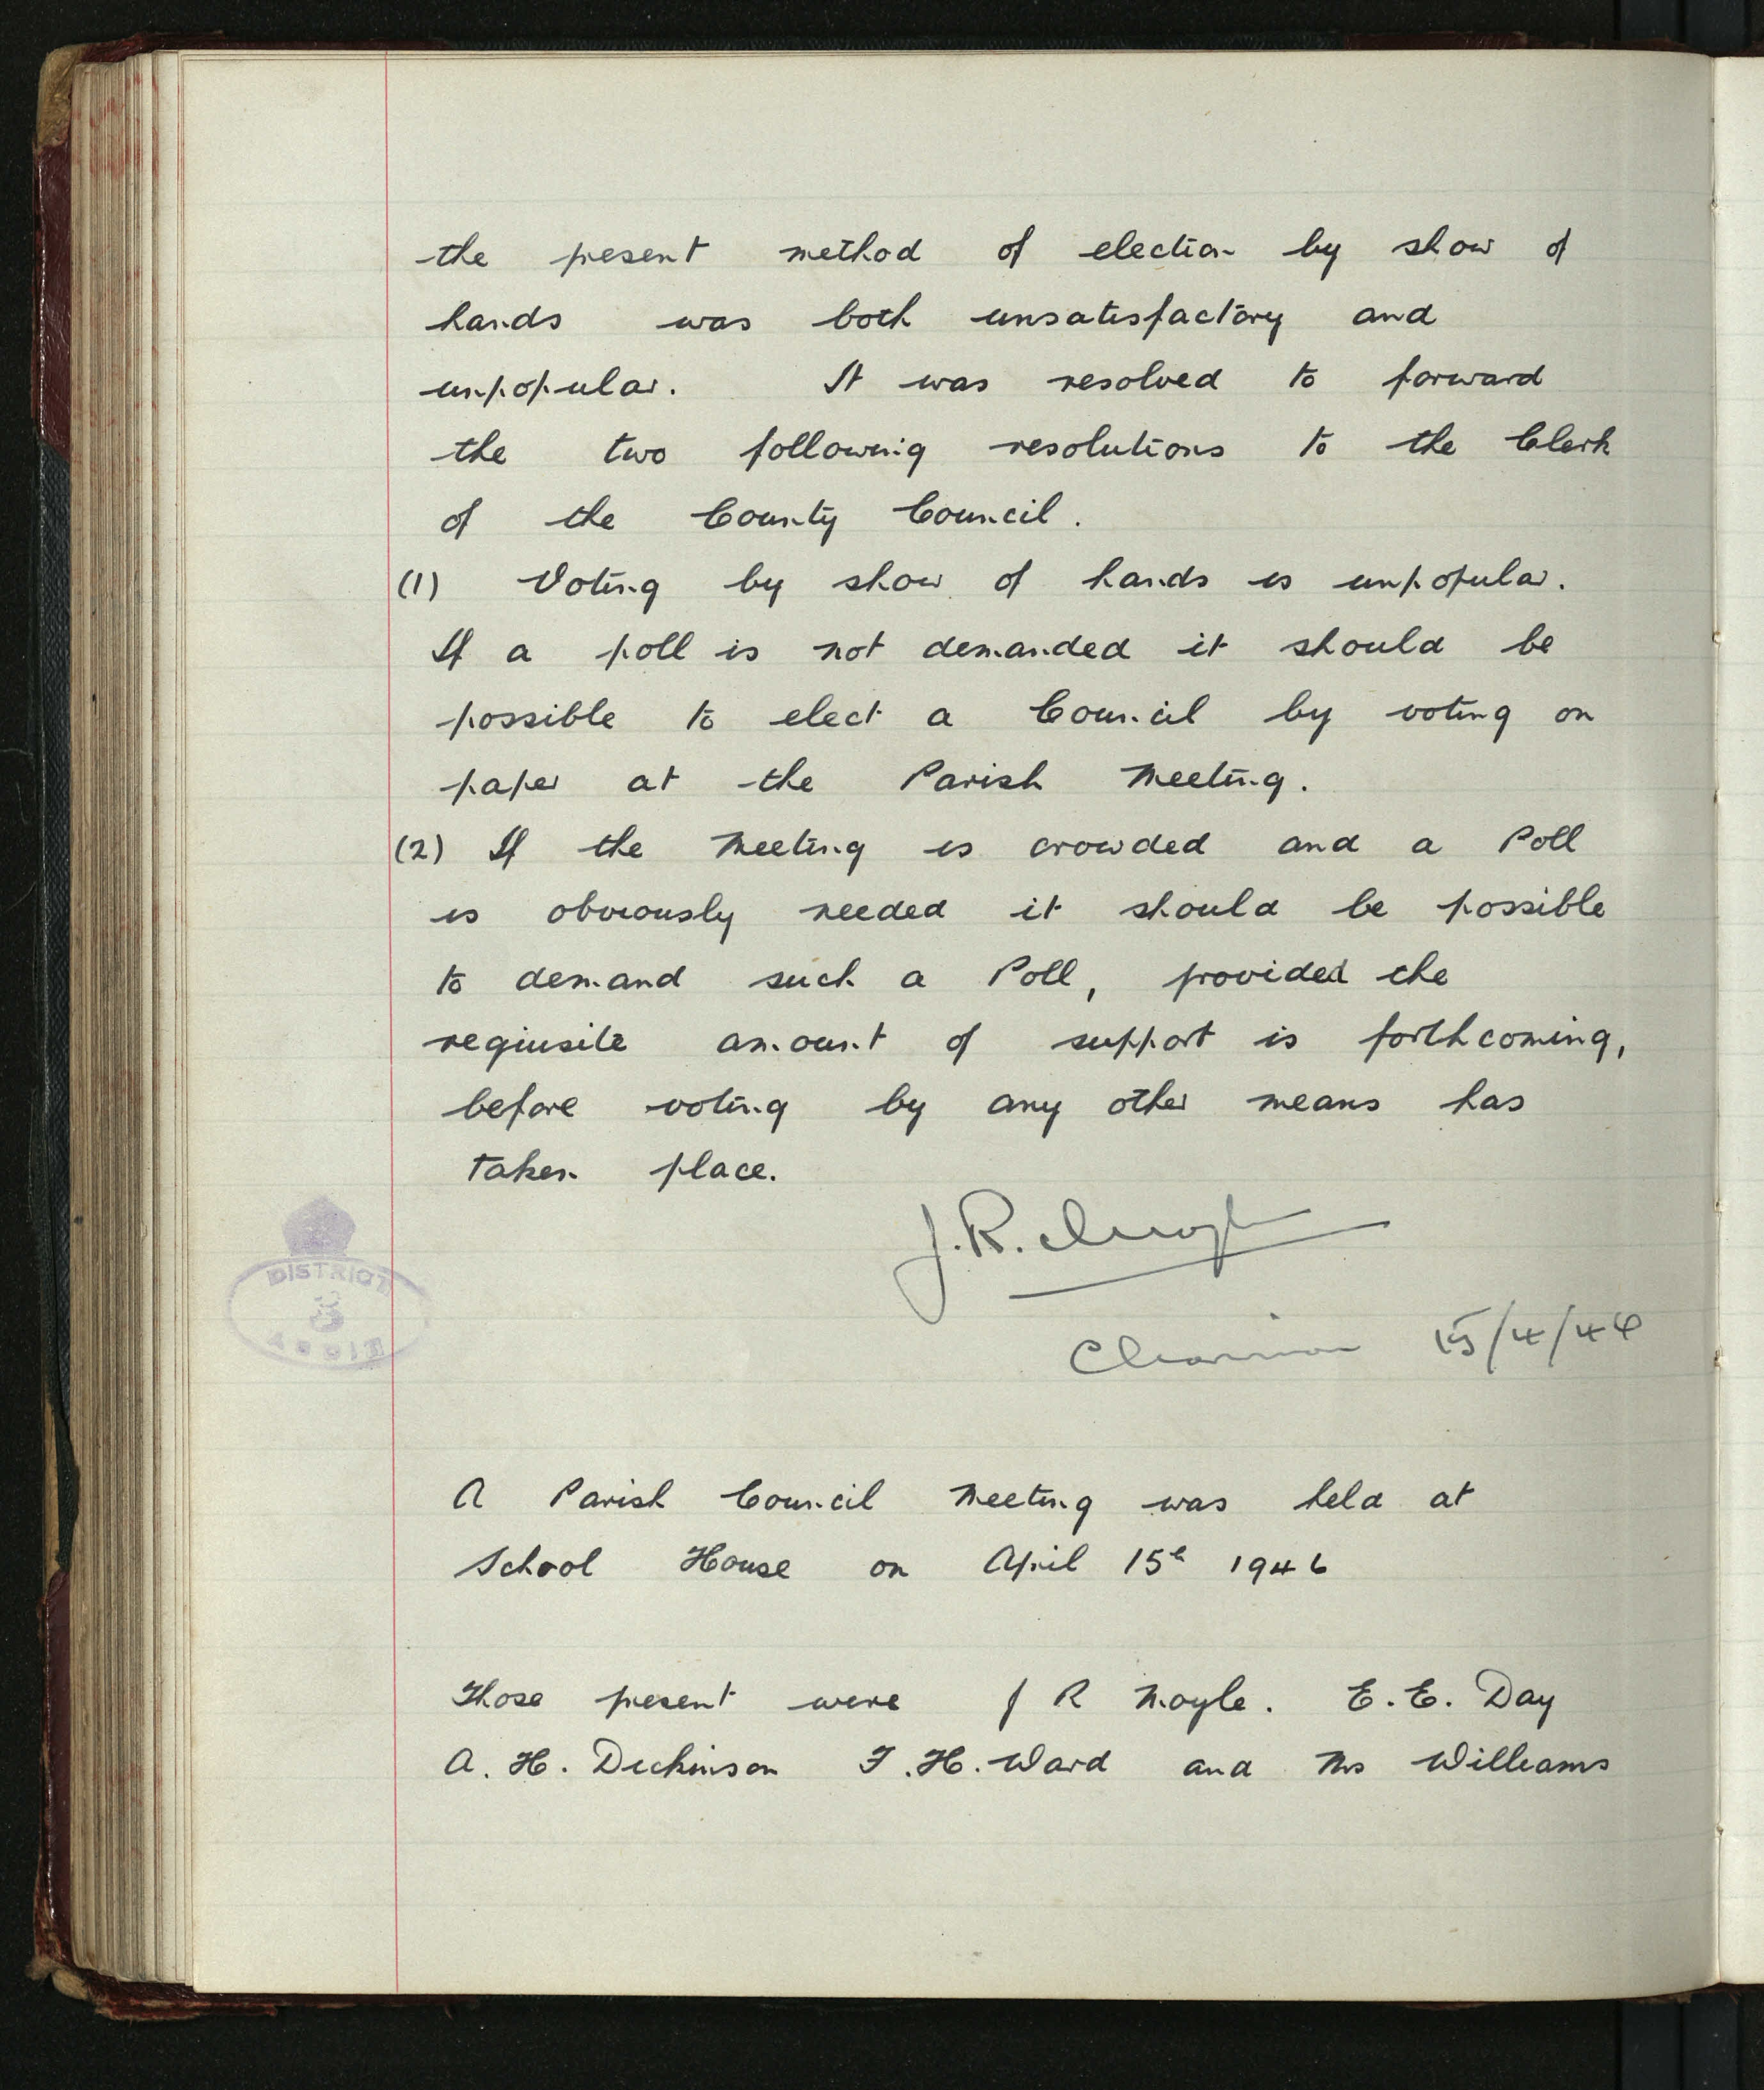 the present method of election by show of
hands was both unsatisfactory and
unpopular. It was resolved to forward
the two following resolutions to the Clerk
of the County Council.
(1) Voting by show of hands is unpopular.
If a poll is not demanded it should be
possible to elect a Council by voting on
paper at the Parish Meeting.
(2) If the Meeting is crowded and a Poll
is obviously needed it should be possible
to demand such a Poll, provided the
requisite amount of support is forthcoming,
before voting by any other means has
taken place.
J. R. Moyle
Chairman 15/4/46
DISTRICT
A Parish Council Meeting was held at
School House on April 15th 1946
Those present were J R Moyle. E. E. Day
A. H. Dickinson T. H. Ward and Mrs Williams